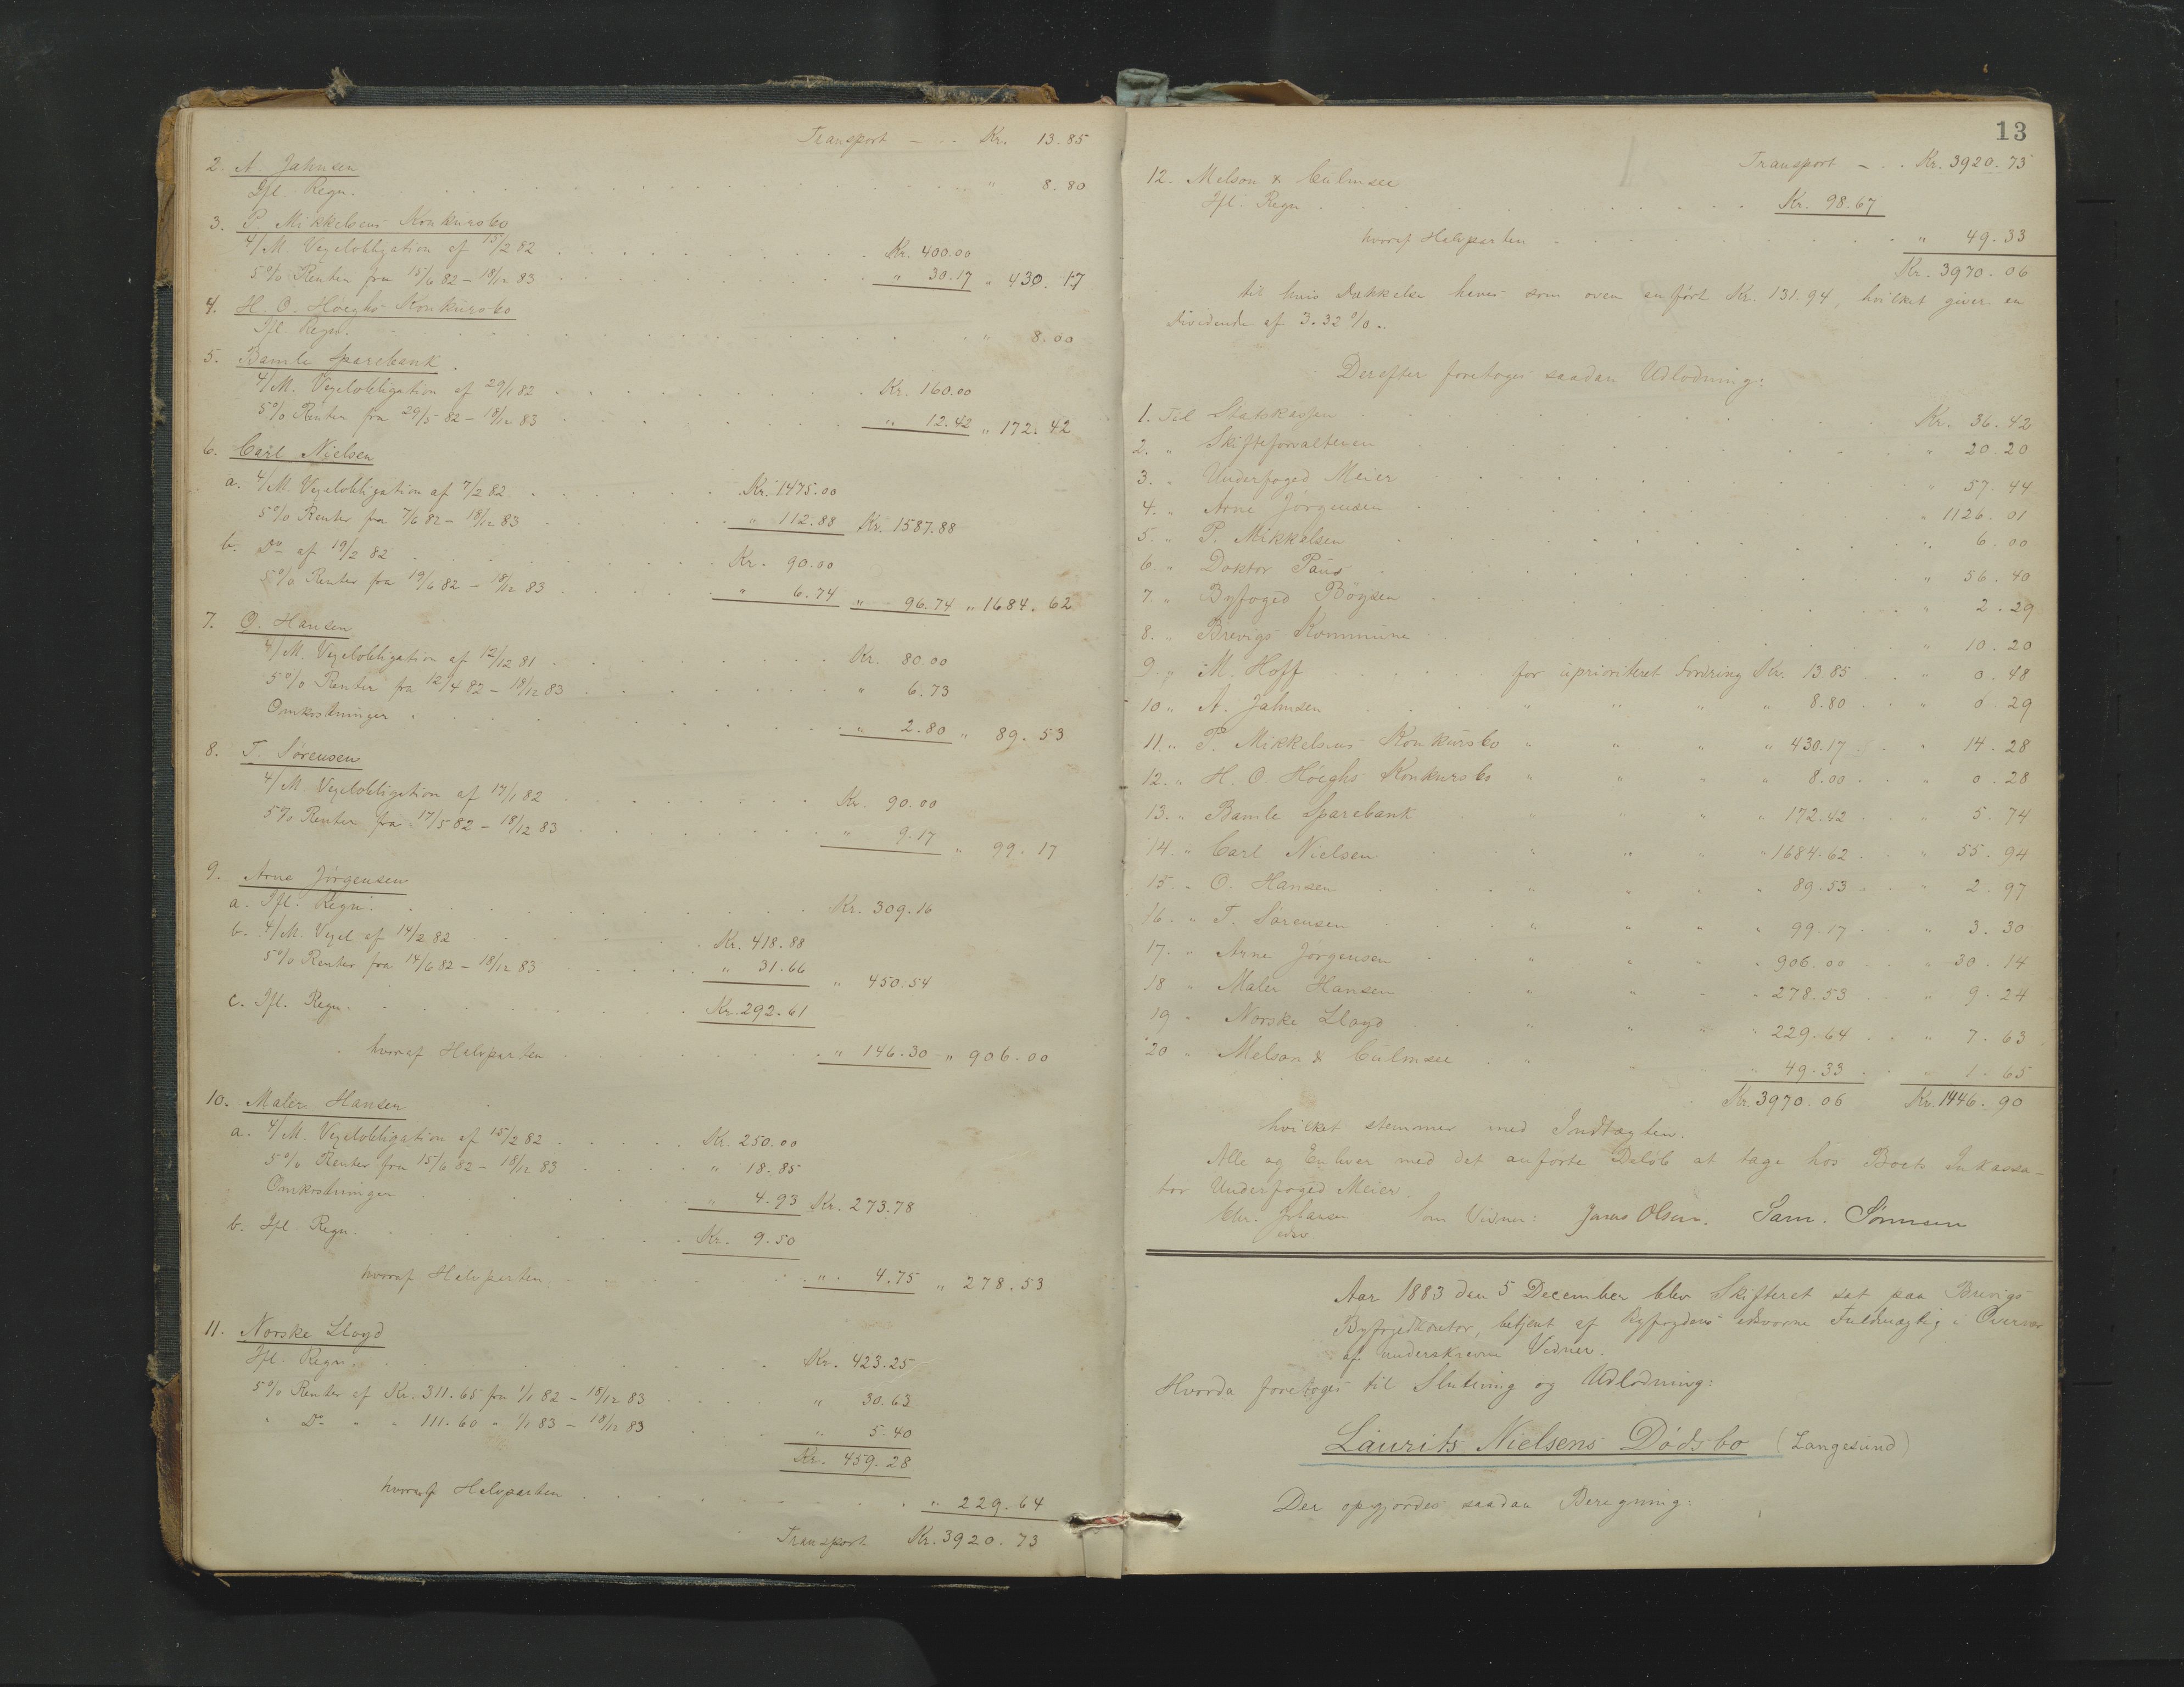 Transport - . . Kr. 13.85
2. A. Jahnsen
Ifl. Regn. . . . " 8.80
3. P. Mikkelsens Konkursbo
4/M. Vexelobligation af 15/2 82 . . . Kr. 400.00
5% Renter fra 15/6 82 – 18/12 83 . . . " 30.17 " 430.17
4. H. O. Høeghs Konkursbo
Ifl. Regn. . . . " 8.00
5. Bamle Sparebank.
4/M. Vexelobligation af 29/1 82 . . . Kr. 160.00
5% Renter fra 29/5 82 – 18/12 83 . . . " 12.42 " 172.42
6. Carl Nielsen
a. 4/M. Vexelobligation af 7/2 82 . . . Kr. 1475.00
5% Renter fra 7/6 82 – 18/12 83 . . . " 112.88 Kr. 1587.88
b. Do af 19/2 82 . . . Kr. 90.00
5% Renter fra 19/6 82 – 18/12 83 . . . " 6.74 " 96.74 " 1684.62
7. O. Hansen
4/M. Vexelobligation af 12/12 81 . . . Kr. 80.00
5% Renter fra 12/4 82 – 18/12 83 . . . " 6.73
Omkostninger . . . " 2.80 " 89.53
8. T. Sørensen
4/M. Vexelobligation af 17/1 82 . . . Kr. 90.00
5% Renter fra 17/5 82 – 18/12 83 . . . " 9.17 " 99.17
9. Arne Jörgensen
a. Ifl. Regn. . . . Kr. 309.16
b. 4/M. Vexel af 14/2 82 . . . Kr. 418.88
5% Renter fra 14/6 82 – 18/12 83 . . . " 31.66 " 450.54
c. Ifl. Regn. . . . Kr. 292.61
hvoraf Halvparten . . . " 146.30 " 906.00
10. Maler Hansen
a. 4/M. Vexelobligation af 15/2 82 . . . Kr. 250.00
5% Renter fra 15/6 82 – 18/12 83 . . . " 18.85
Omkostninger . . . " 4.93 Kr. 273.78
b. Ifl. Regn. . . . Kr. 9.50
hvoraf Halvparten . . . " 4.75 " 278.53
11. Norske Lloyd
Ifl. Regn. . . . Kr. 423.25
5% Renter af Kr. 311.65 fra 1/1 82 – 18/12 83 . . . " 30.63
" Do " " 111.60 " 1/1 83 – 18/12 83 . . . " 5.40
Kr. 459.28
hvoraf Halvparten . . . " 229.64
Transport Kr. 3920.73
13
Transport - . . Kr. 3920.73
12. Melson & Culmsee
Ifl. Regn . . . Kr. 98.67
hvoraf Halvparten . . . " 49.33
Kr. 3970.06
til hvis Dækkelse haves som oven anført Kr. 131.94, hvilket giver en
Dividende af 3.32%.
Derefter foretoges saadan Udlodning:
1. Til Statskassen . . . Kr. 36.42
2. " Skifteforvalteren . . . " 20.20
3. " Underfoged Meier . . . " 57.44
4. " Arne Jörgensen . . . " 1126.01
5. " P. Mikkelsen . . . " 6.00
6. " Doktor Paus . . . " 56.40
7. " Byfoged Böysen . . . " 2.29
8. " Brevigs Kommune . . . " 10.20
9. " M. Hoff . . . for uprioriteret Fordring Kr. 13.85 . . " 0.48
10. " A. Jahnsen . . . " " " " 8.80 . . " 0.29
11. " P. Mikkelsens Konkursbo " " " " 430.17 . . " 14.28
12. " H. O. Høeghs Konkursbo " " " " 8.00 . . " 0.28
13. " Bamle Sparebank . " " " " 172.42 . . " 5.74
14. " Carl Nielsen . . " " " " 1684.62 . . " 55.94
15. " O. Hansen . . . " " " " 89.53 . . " 2.97
16. " T. Sørensen . . " " " " 99.17 . . " 3.30
17. " Arne Jørgensen . . " " " " 906.00 . . " 30.14
18 " Maler Hansen . . " " " " 278.53 . . " 9.24
19 " Norske Lloyd . . " " " " 229.64 . . " 7.63
20 " Melson & Culmsee . " " " " 49.33 . . " 1.65
Kr. 3970.06 Kr. 1446.90
hvilket stemmer med Indtægten.
Alle og Enhver med det anførte Beløb at tage hos Boets Inkassa-
tor Underfoged Meier.
Chr. Johansen Som Vidner: Jonas Olsen. Sam. Sörensen
edsv.
Aar 1883 den 5 December blev Skifteret sat paa Brevigs
Byfogedkontor, betjent af Byfogdens edsvorne Fuldmægtig i Overvær
af underskrevne Vidner.
Hvorda foretoges til Slutning og Udlodning:
Laurits Nielsens Dødsbo (Langesund)
Der opgjordes saadan Beregning: